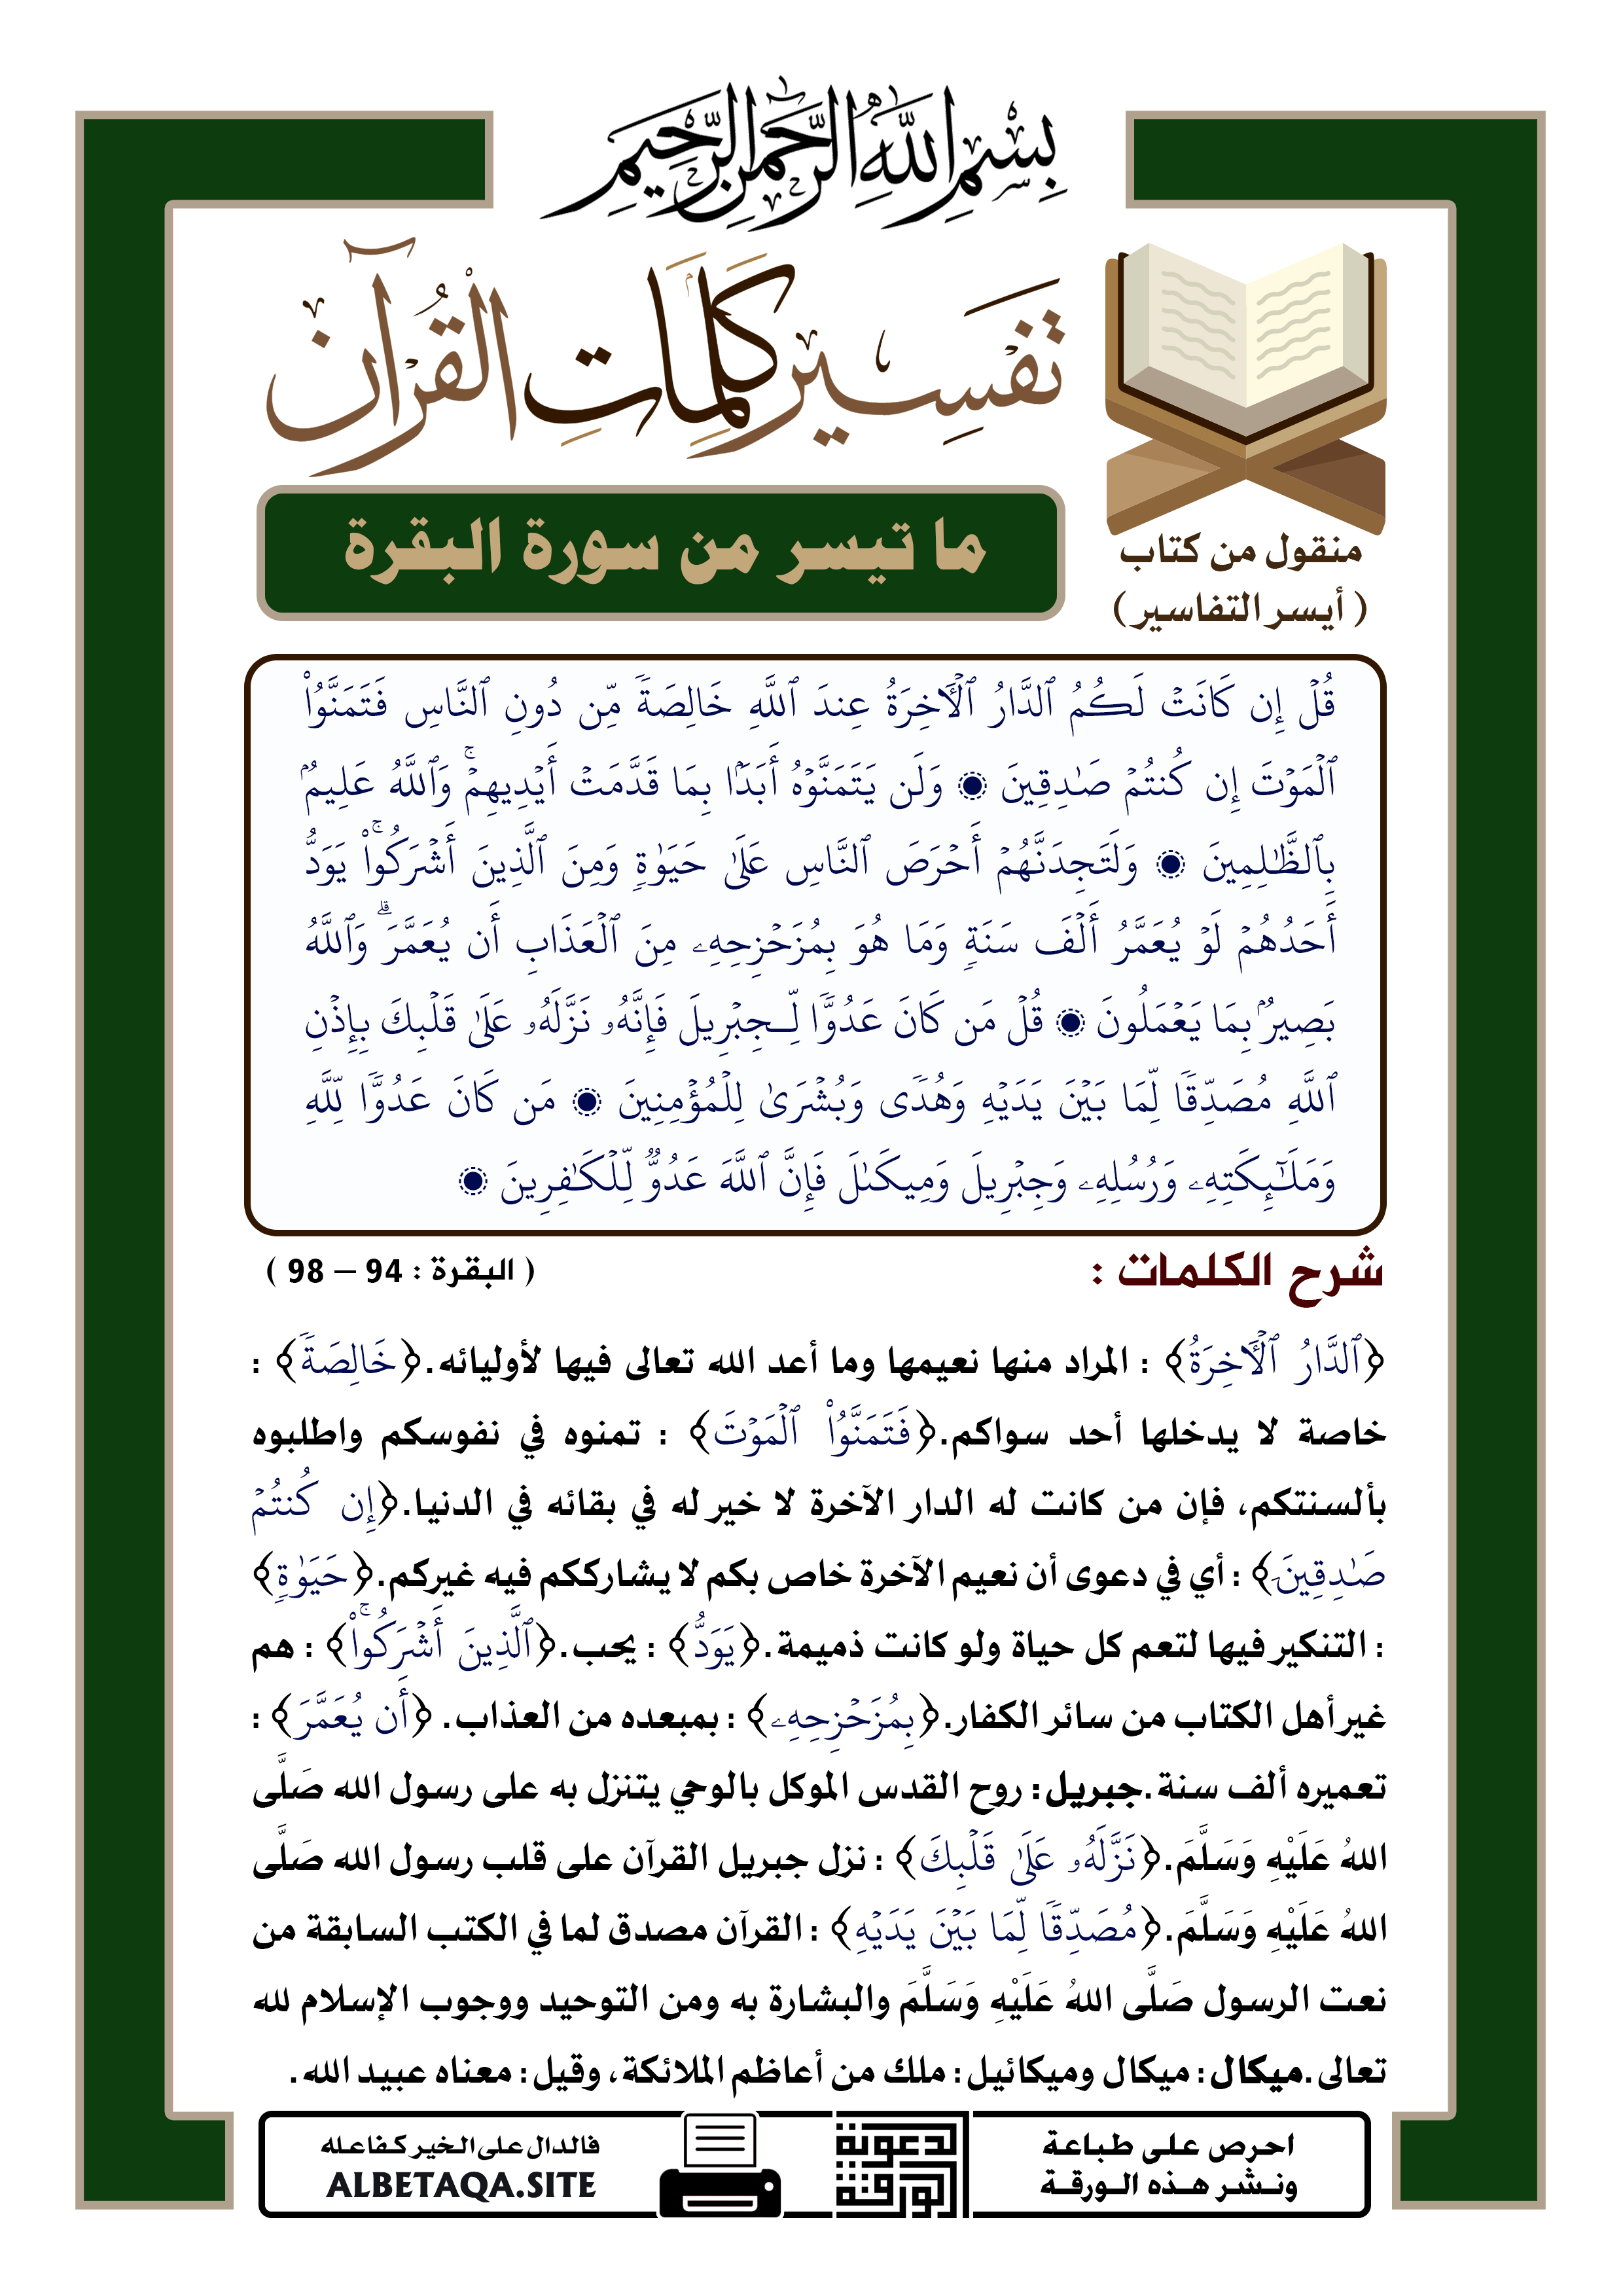 بِسْمِ اللَّهِ الرَّحْمَٰنِ الرَّحِيمِ
تَفْسِير كَلِمَاتِ الْقُرْآن
منقول من كتاب
( أيسر التفاسير )
ما تيسر من سورة البقرة
قُلۡ إِن كَانَتۡ لَكُمُ ٱلدَّارُ ٱلۡأٓخِرَةُ عِندَ ٱللَّهِ خَالِصَةٗ مِّن دُونِ ٱلنَّاسِ فَتَمَنَّوُاْ
ٱلۡمَوۡتَ إِن كُنتُمۡ صَٰدِقِينَ ۝ وَلَن يَتَمَنَّوۡهُ أَبَدَۢا بِمَا قَدَّمَتۡ أَيۡدِيهِمۡۚ وَٱللَّهُ عَلِيمُۢ
بِٱلظَّٰلِمِينَ ۝ وَلَتَجِدَنَّهُمۡ أَحۡرَصَ ٱلنَّاسِ عَلَىٰ حَيَوٰةٖ وَمِنَ ٱلَّذِينَ أَشۡرَكُواْۚ يَوَدُّ
أَحَدُهُمۡ لَوۡ يُعَمَّرُ أَلۡفَ سَنَةٖ وَمَا هُوَ بِمُزَحۡزِحِهِۦ مِنَ ٱلۡعَذَابِ أَن يُعَمَّرَۗ وَٱللَّهُ
بَصِيرُۢ بِمَا يَعۡمَلُونَ ۝ قُلۡ مَن كَانَ عَدُوّٗا لِّـجِبۡرِيلَ فَإِنَّهُۥ نَزَّلَهُۥ عَلَىٰ قَلۡبِكَ بِإِذۡنِ
ٱللَّهِ مُصَدِّقٗا لِّمَا بَيۡنَ يَدَيۡهِ وَهُدٗى وَبُشۡرَىٰ لِلۡمُؤۡمِنِينَ ۝ مَن كَانَ عَدُوّٗا لِّلَّهِ
وَمَلَٰٓئِكَتِهِۦ وَرُسُلِهِۦ وَجِبۡرِيلَ وَمِيكَىٰلَ فَإِنَّ ٱللَّهَ عَدُوّٞ لِّلۡكَٰفِرِينَ ۝
شرح الكلمات :
( البقرة : 94 – 98 )
﴿ٱلدَّارُ ٱلۡأٓخِرَةُ﴾ : المراد منها نعيمها وما أعد الله تعالى فيها لأوليائه.﴿خَالِصَةٗ﴾ :
خاصة لا يدخلها أحد سواكم.﴿فَتَمَنَّوُاْ ٱلۡمَوۡتَ﴾ : تمنوه في نفوسكم واطلبوه
بألسنتكم، فإن من كانت له الدار الآخرة لا خير له في بقائه في الدنيا.﴿إِن كُنتُمۡ
صَٰدِقِينَ﴾ : أي في دعوى أن نعيم الآخرة خاص بكم لا يشارككم فيه غيركم.﴿حَيَوٰةٖ﴾
: التنكير فيها لتعم كل حياة ولو كانت ذميمة.﴿يَوَدُّ﴾ : يحب.﴿ٱلَّذِينَ أَشۡرَكُواْۚ﴾ : هم
غير أهل الكتاب من سائر الكفار.﴿بِمُزَحۡزِحِهِۦ﴾ : بمبعده من العذاب. ﴿أَن يُعَمَّرَ﴾ :
تعميره ألف سنة.جبريل: روح القدس الموكل بالوحي يتنزل به على رسول الله صَلَّى
اللهُ عَلَيْهِ وَسَلَّمَ.﴿نَزَّلَهُۥ عَلَىٰ قَلۡبِكَ﴾ : نزل جبريل القرآن على قلب رسول الله صَلَّى
اللهُ عَلَيْهِ وَسَلَّمَ.﴿مُصَدِّقٗا لِّمَا بَيۡنَ يَدَيۡهِ﴾ : القرآن مصدق لما في الكتب السابقة من
نعت الرسول صَلَّى اللهُ عَلَيْهِ وَسَلَّمَ والبشارة به ومن التوحيد ووجوب الإسلام لله
تعالى.ميكال: ميكال وميكائيل: ملك من أعاظم الملائكة، وقيل: معناه عبيد الله.
احرص على طباعة
ونشر هذه الورقة
الورقة
الدعوية
فالدال على الخير كفاعله
ALBETAQA.SITE